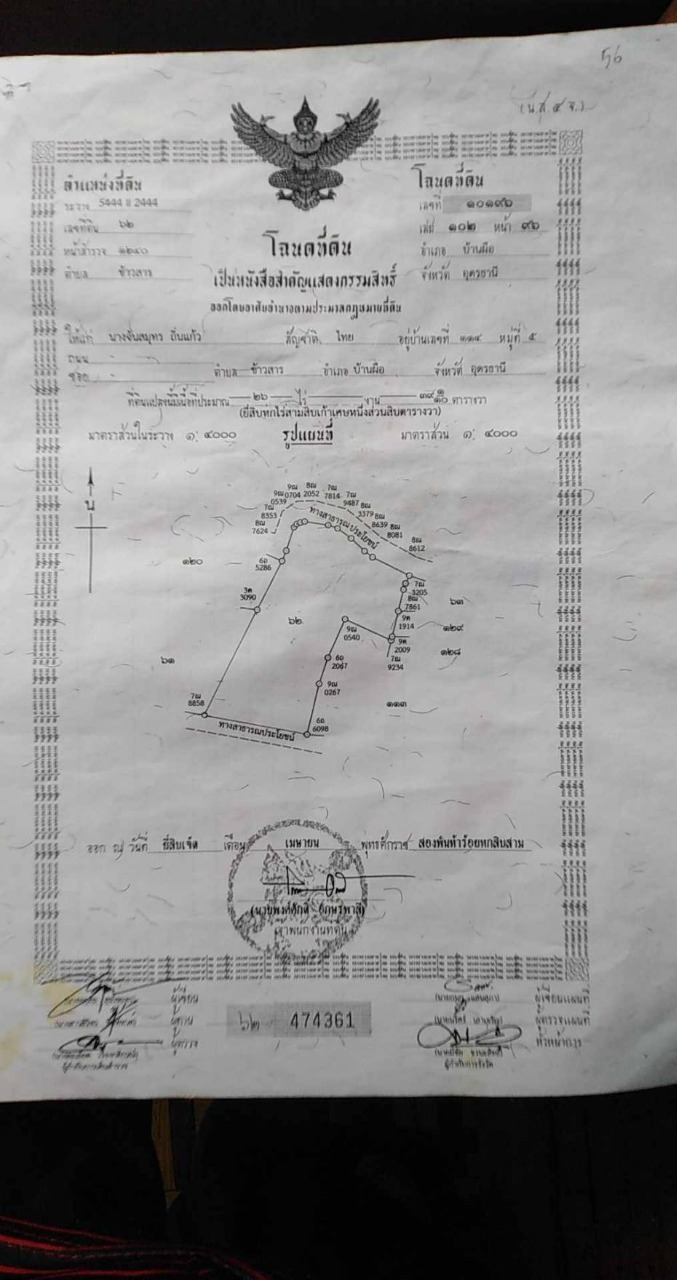 (น.ส. ๔ จ.)
ตำแหน่งที่ดิน
ระวาง 5444 II 2444
เลขที่ดิน ๖๒
หน้าสำรวจ ๑๒๔๐
ตำบล ข้าวสาร
โฉนดที่ดิน
เลขที่ ๑๐๑๙๖
เล่ม ๑๐๒ หน้า ๙๖
อำเภอ บ้านผือ
จังหวัด อุดรธานี
โฉนดที่ดิน
เป็นหนังสือสำคัญแสดงกรรมสิทธิ์
ออกโดยอาศัยอำนาจตามประมวลกฎหมายที่ดิน
ให้แก่ นางจันสมุทร ถิ่นแก้ว สัญชาติ ไทย อยู่บ้านเลขที่ ๑๑๔ หมู่ที่ ๕
ถนน -
ซอย - ตำบล ข้าวสาร อำเภอ บ้านผือ จังหวัด อุดรธานี
ที่ดินแปลงนี้มีเนื้อที่ประมาณ ๒๖ ไร่ - งาน ๓๙ ๑/๑๐ ตารางวา
(ยี่สิบหกไร่สามสิบเก้าเศษหนึ่งส่วนสิบตารางวา)
มาตราส่วนในระวาง ๑: ๔๐๐๐ รูปแผนที่ มาตราส่วน ๑: ๔๐๐๐
น
ทางสาธารณประโยชน์
๑๒๐
๖๒
๖๓
๑๒๙
๑๒๘
๖๑
๑๑๓
7624
8353
0539
0704
2052
7814
9487
3379
8639
8081
8612
5286
3090
3205
7861
1914
2009
9234
0540
2067
0267
8858
6098
ทางสาธารณประโยชน์
ออก ณ วันที่ ยี่สิบเจ็ด เดือน เมษายน พุทธศักราช สองพันห้าร้อยหกสิบสาม
เจ้าพนักงานที่ดิน
ผู้เขียน
ผู้ทาน
ผู้ตรวจ
๖๒ 474361
ผู้เขียนแผนที่
ผู้ตรวจแผนที่
หัวหน้าการ
ผู้กำกับการรังวัด